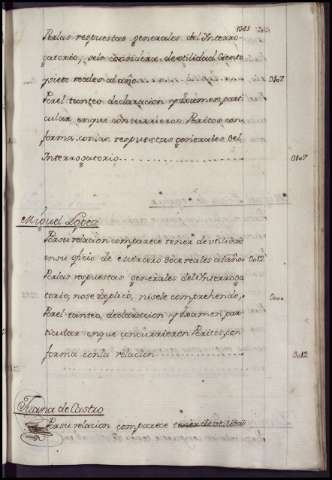 Por las respuestas generales del Interro-
gatorio, sele considera de utilidad Ciento
y siete reales al año 0107
Por el tanteo declaracion y examen parti
cular, en que concurrieron Peritos con
forma con las respuestas generales del
Interrogatorio 0107
Miguel Lopez
Por su relacion comparece tener de utilidad
en su oficio de reales al año
Por las respuestas generales del Interroga
torio, nose explicó, nisele comprehende,
Por el tanteo, declaracion y examen par
ticular en que concurrieron Peritos, con
forma con la relacion
de Castro
Por su relacion comparece tener de utilidad